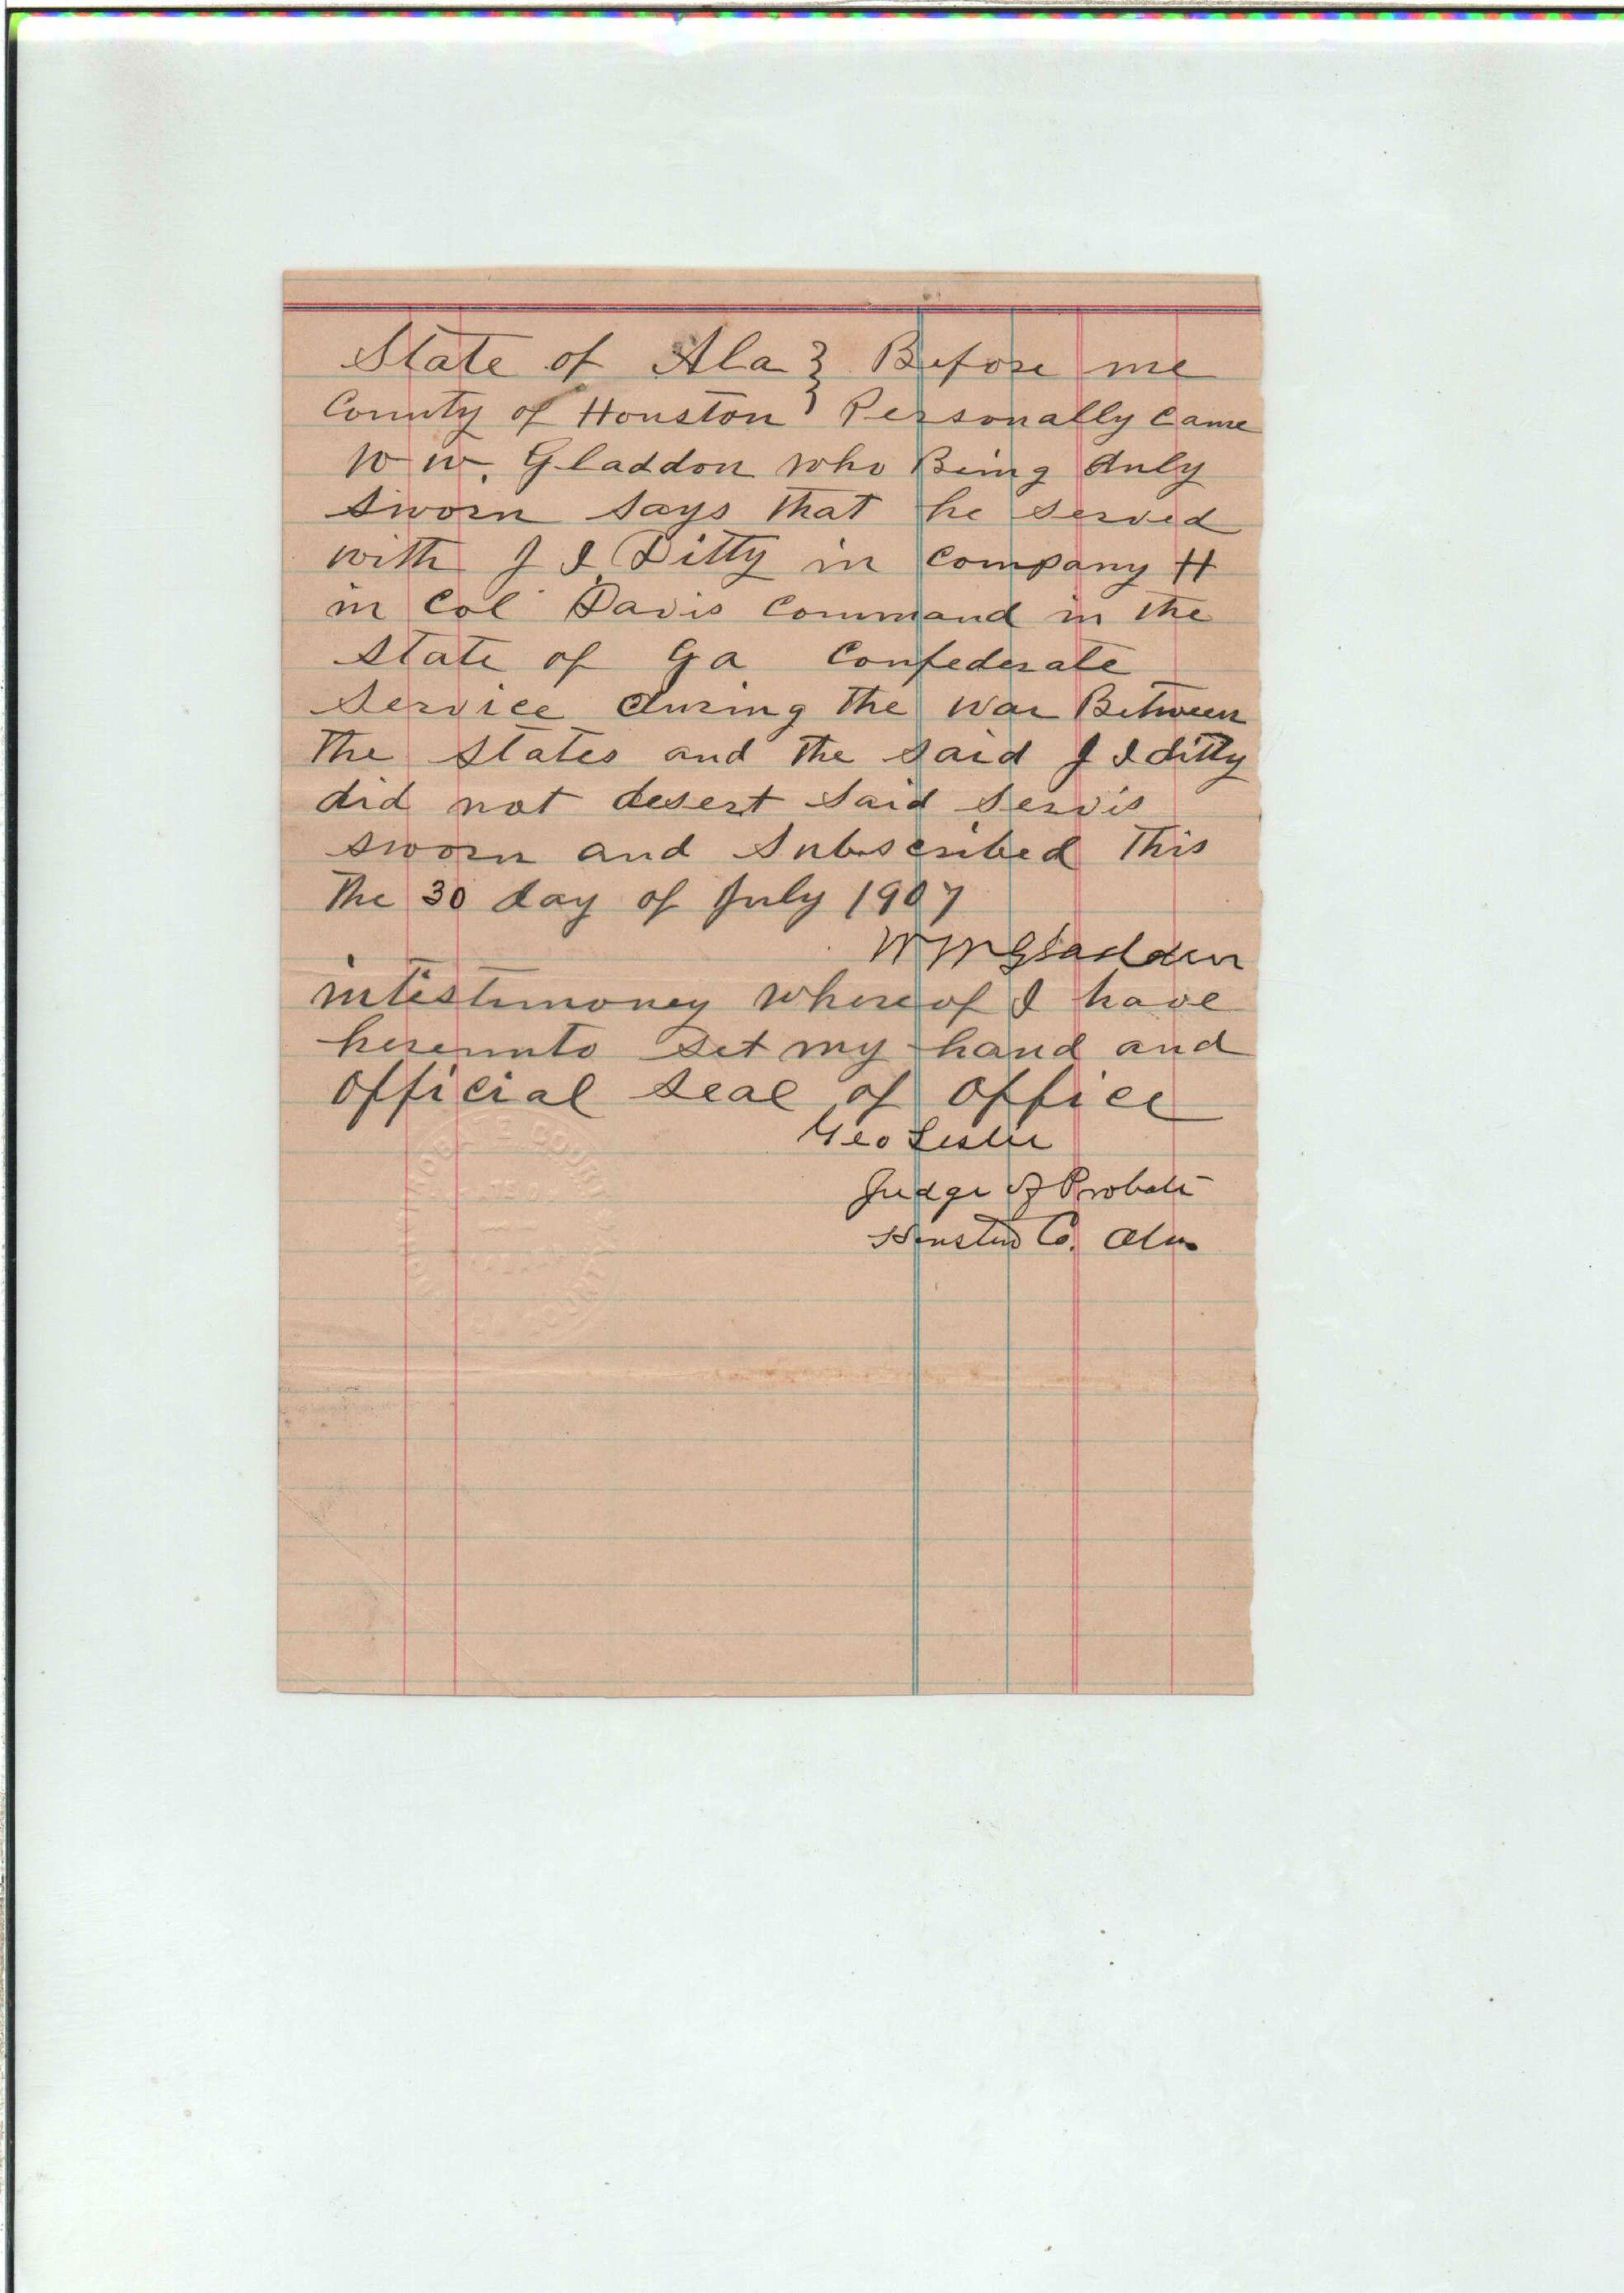 State of Ala } Before me
County of Houston } Personally came
W W. Gladdon who Being duly
sworn says that he served
with J I Ditty in Company H
in Col Davis Command in the
State of Ga Confederate
Service during the war Between
The states and the said J I ditty
did not desert said servis
sworn and Subscribed this
The 30 day of July 1907
W W Gladden
intestimoney whereof I have
hereunto set my hand and
official seal of office
Geo Leslie
Judge of Probate
Houston Co. Ala
PROBATE COURT
COUNTY